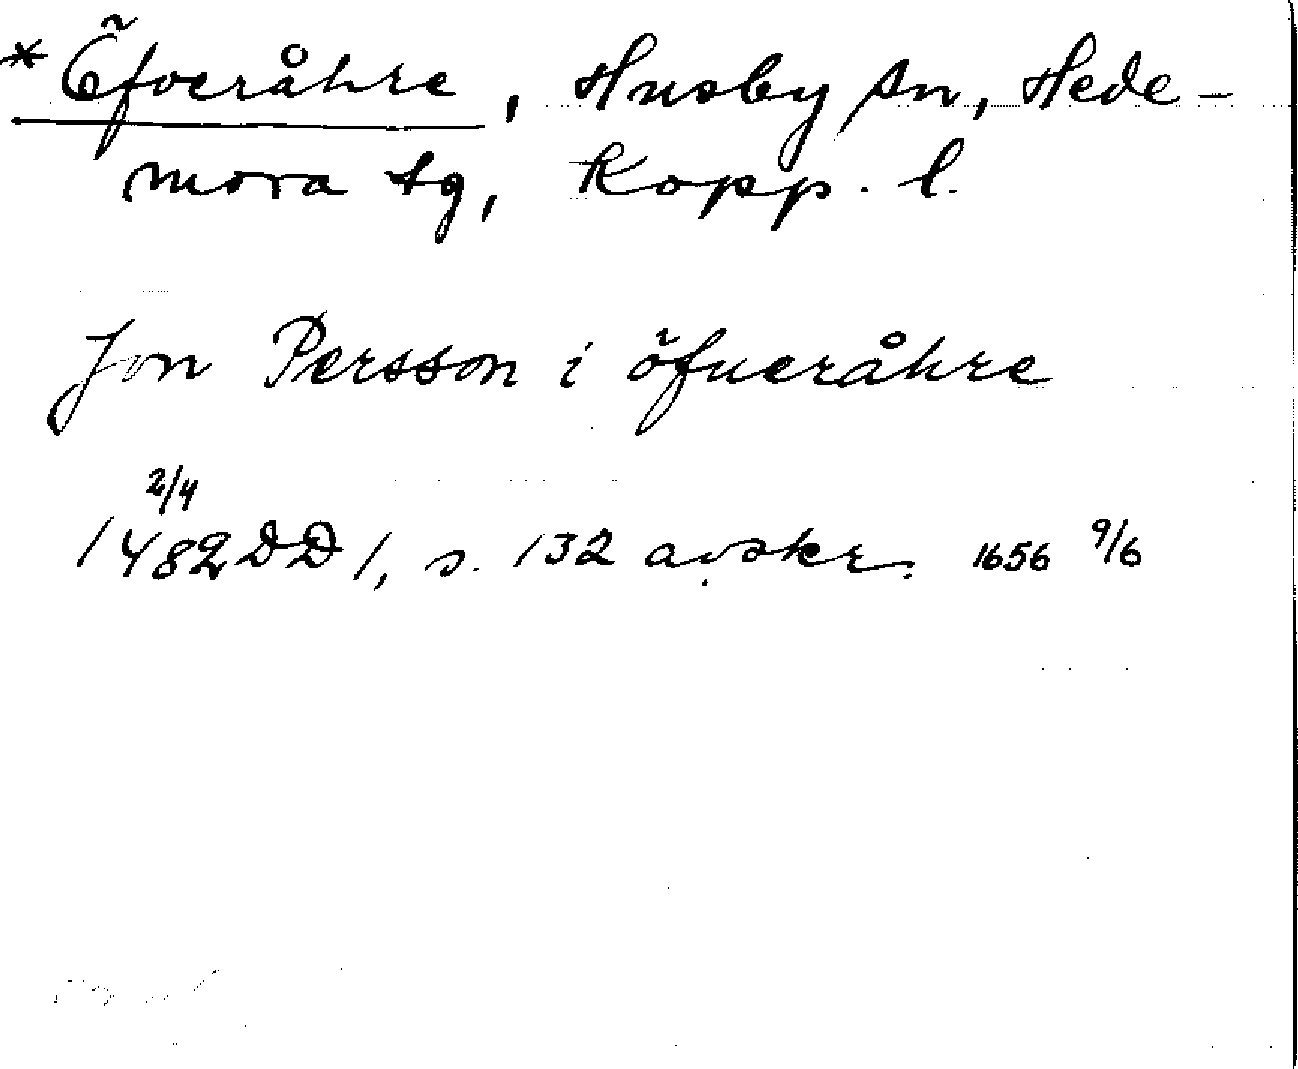 * Öfveråhre, Husby sn, Hede-
mora tg, Kopp. l.
Jon Persson i öfueråhre
2/4
1482 DD 1, s. 132 avskr. 1656 9/6